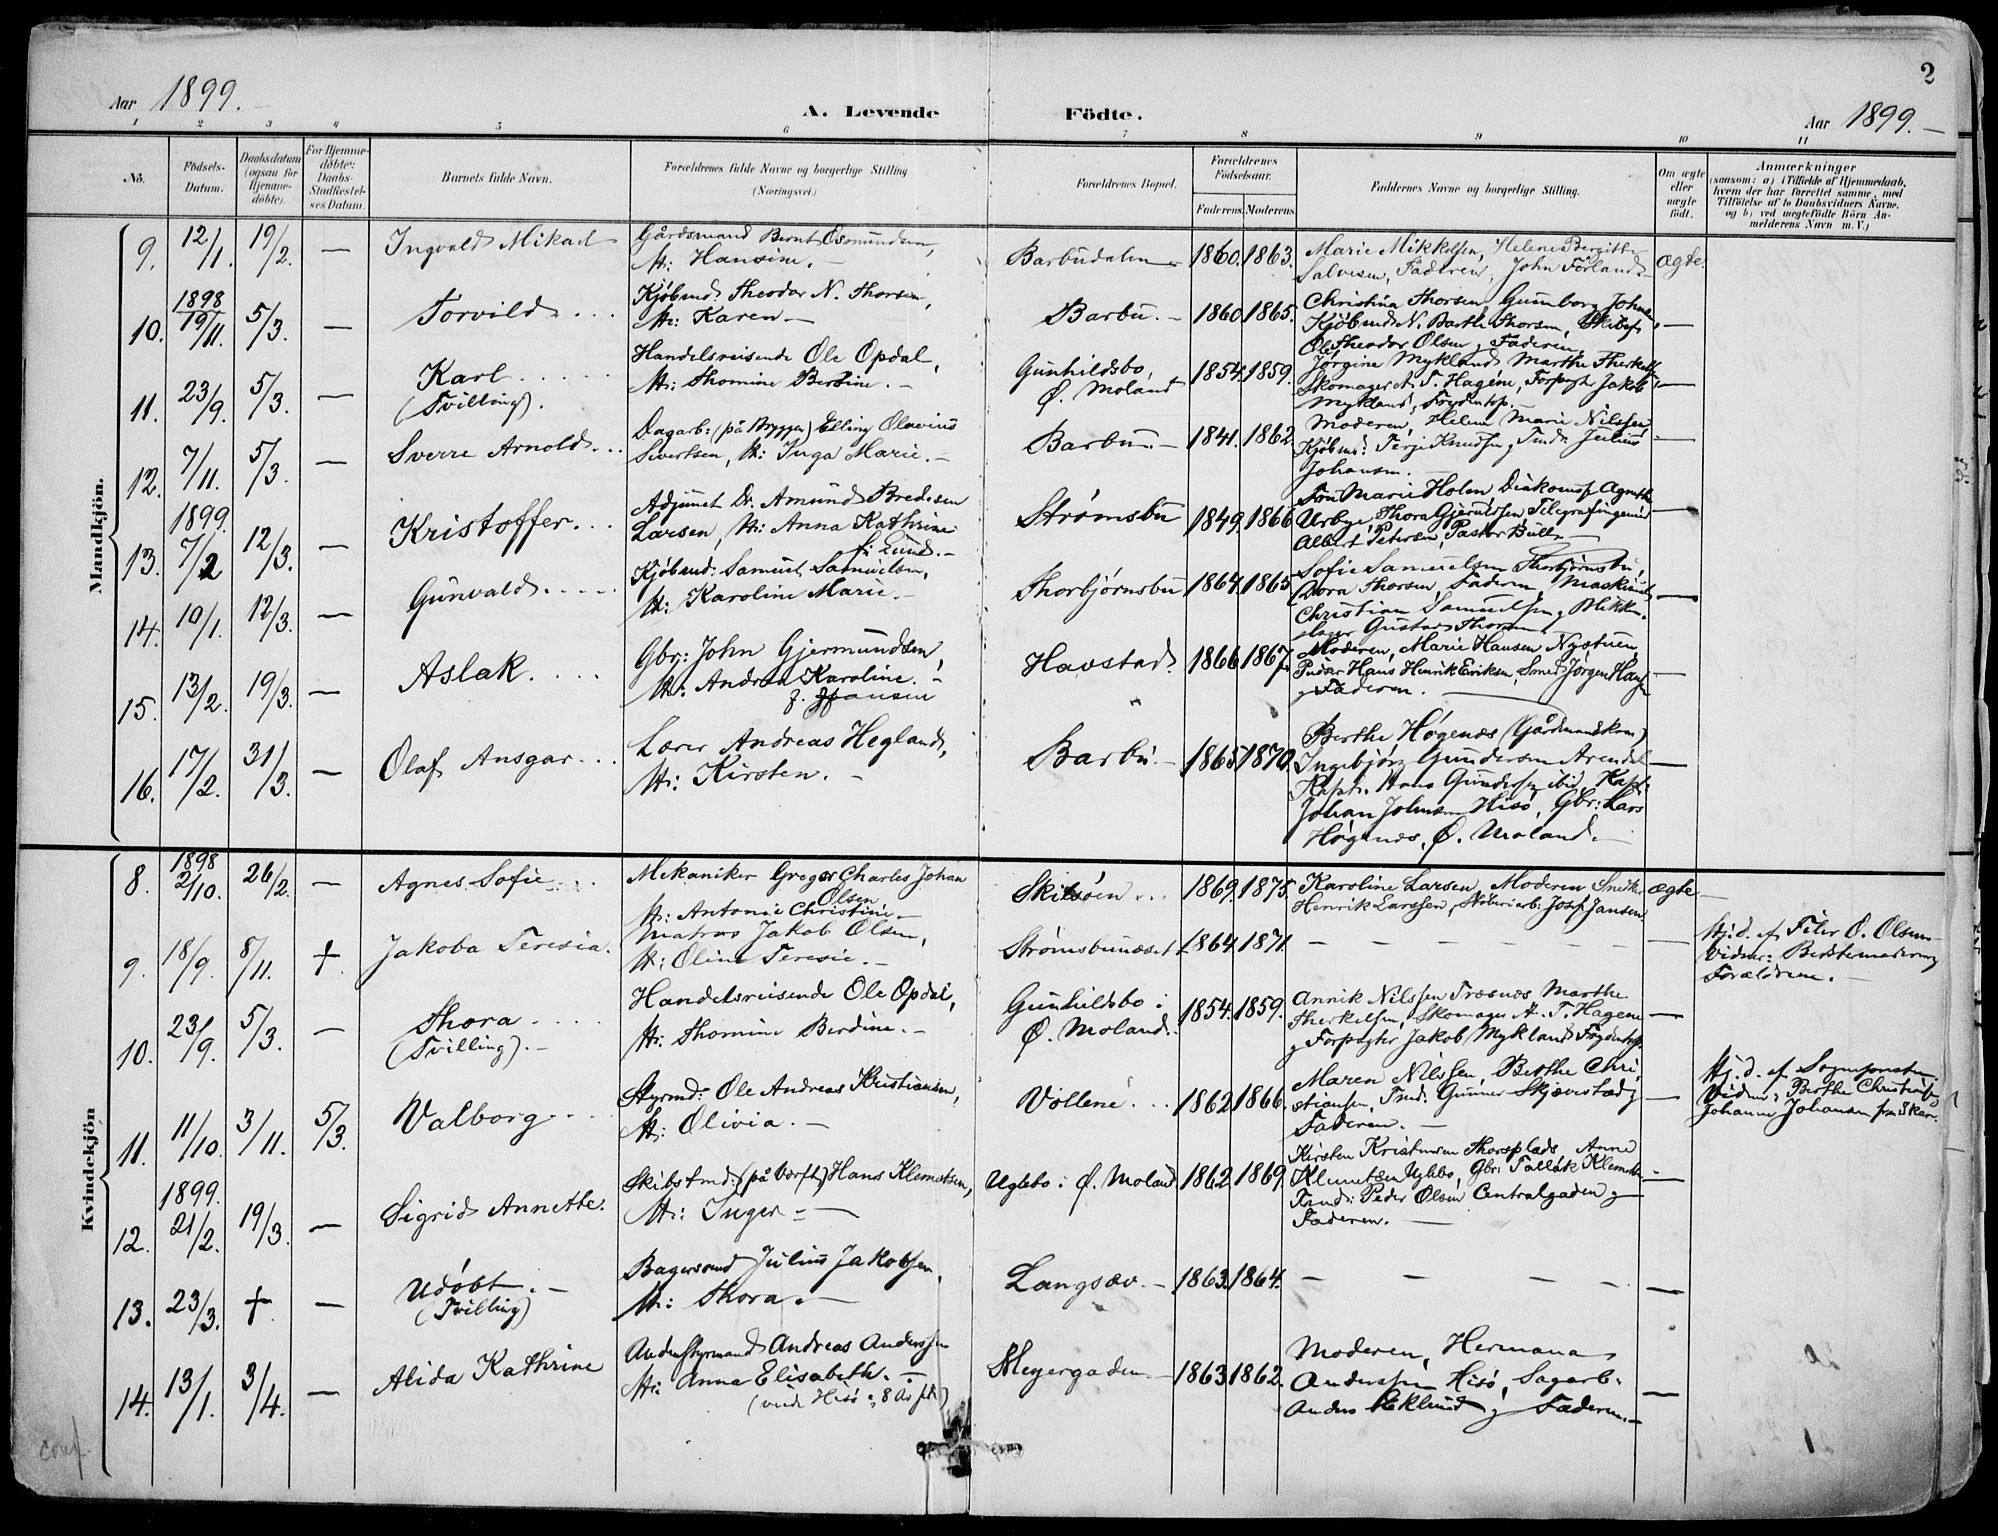 2
Aar 1899.
A. Levende Födte.
Aar 1899.
1 2 3 4 5 6 7 8 9 10 11
No.
Födsels-
Datum.
Daabsdatum
(ogsaa for
Hjemme-
döbte).
For Hjemme-
döbte:
Daabs-
Stadfæstel-
ses Datum.
Barnets fulde Navn.
Forældrenes fulde Navne og borgerlige Stilling
(Næringsvei.)
Forældrenes Bopæl.
Forældrenes
Födselsaar.
Faderens. Moderens.
Faddernes Navne og borgerlige Stilling.
Om ægte
eller
uægte
födt.
Anmærkninger
(saasom: a) i Tilfælde af Hjemmedaab,
hvem der har forrettet samme, med
Tilföielse af to Daabsvidners Navne,
og b) ved uegtefödte Börn An-
melderens Navn m. V.)
Mandkjön.
9. 12/1. 19/2. — Ingvald Mikael
Gårdsmand Bernt Osmundsen,
H: Hansine. —
Barbudalen 1860. 1863.
Marie Mikkelsen, Helene Bergitte
Salvesen, Faderen, John Förland
Ægte.
10. 1898 19/11. 5/3. — Torvild...
Kjöbmd. Theodor N. Thorsen,
H: Karen —
Barbu. — 1860 1865.
Christina Thorsen, Gunborg Johnsen,
Kjöbmd N. Barth Thorsen, Skibsf.
Ole Theodor Olsen, Faderen. —
11. 23/9. 5/3. — Karl.....
(Tvilling).
Handelsreisende Ole Opdal,
H: Thomine Berdine. —
Gunhildsbo,
Ø. Moland
1854. 1859.
Jørgine Mykland Marthe Therkelsen,
Skomager A. T. Hagene, Forpagt. Jakob
Mykland, —
12. 7/11. 5/3. — Sverre Arnold...
Dagarb: (på Bryggen) Elling Olavius
Sivertsen, H: Inga Marie. —
Barbu. — 1841. 1862.
Moderen, Helene Marie Nilssen
Kjöbmd: Terje Knudsen, Tmd: Julius
Johansen. —
13. 1899. 7/2 12/3. — Kristoffer...
Adjunct Dr. Amund Bredesen
Larsen, H: Anna Kathrine
f: Lund. —
Strømsbu 1849. 1866
Fru Marie Holm, Diakonisse Agnethe
Urbye, Thora Gjeruldsen, Telegrafingeniør
Albert Petersen, Pastor Bull. —
14. 10/1. 12/3. — Gunvald.....
Kjöbmd: Samuel Samuelsen,
H: Karoline Marie. —
Thorbjørnsbu 1864. 1865
Sofie Samuelsen Thorbjørnsbu,
Dora Thorsen, Faderen, Maskinist
Christian Samuelsen, Blikken-
slager Gustav Thorsen. —
15. 13/2. 19/3. — Aslak....
Gbr: John Gjermundsen,
H: Andrea Karoline. —
f. Hansen
Havstad 1866. 1867
Moderen, Marie Hansen Nystuen,
Pudser Hans Henrik Eriksen, Smed Jørgen Hansen
Faderen. —
16. 17/2. 31/3. — Olaf Ansgar...
Lærer Andreas Hegland,
H: Kirsten. —
Barbu. — 1865. 1870.
Berthe Høgenæs (Gårdmandskone)
Ingebjørg Gundersen Arendal
Kapt. Hans Gundersen ibid, Kapt.
Johan Johnsen Hisö, Gbr: Lars
Høgenæs, Ø. Moland. —
Kvindekjön
8. 1898 2/10. 26/2. — Agnes Sofie...
Mekaniker Greger Charles Johan
Olsen
H: Antonie Christine —
Skilsøen... 1869. 1875.
Karoline Larsen, Moderen Snedker
Henrik Larssen, Josef Jansen
Ægte —
9. 18/9. 8/11. † Jakoba Teresia.
Matros Jakob Olsen,
H: Oline Teresie. —
Strømsbunæset 1864. 1871.
Hj.d. af Peter O. Olsen
Vidner: Bedstemoderen og
Forældrene. —
10. 23/9. 5/3. — Thora....
(Tvilling). —
Handelsreisende Ole Opdal,
H: Thomine Berdine. —
Gunhildsbo i
Ø. Moland.
1854. 1859.
Annik Nilssen Træsnes Marthe
Therkelsen, Skomager A. T. Hagene
Forpagter Jakob Mykland —
11. 11/10. 3/11. 5/3. Valborg....
Styrmd: Ole Andreas Kristiansen,
H: Olivia. —
Vollene... 1862 1866.
Maren Nilssen, Berthe Chri-
stiansen, Tmd: Gunner Skjævestad,
Faderen. —
Hj.d. af Sognepresten
Vidner: Berthe Christians
Johanne Johansen
12. 1899. 21/2. 19/3. — Sigrid Annette.
Skibstmd: (på Værft) Hans Klemetsen,
H: Inger —
Uglebo i Ø. Moland 1862 1869.
Kirsten Kristensen Thorsplads, Anne
Klemetsen Uglebo, Gbr: Tallak Klemetsen
Tmd: Peder Olsen Centralgaden
Faderen. —
13. 23/3. † — Udøbt. —
(Tvilling)
Bagersvend Julius Jakobsen,
H: Thora. —
Langsæv. — 1863. 1864. — — — —
14. 13/1. 3/4. — Alida Kathrine
Andenstyrmand Andreas Anderssen
H: Anna Elisabeth. —
Meyergaden. — 1863. 1862.
Moderen, Hermana
Anderssen Hisö, Sagarb:
Anders Eklund, Faderen. —
conf.